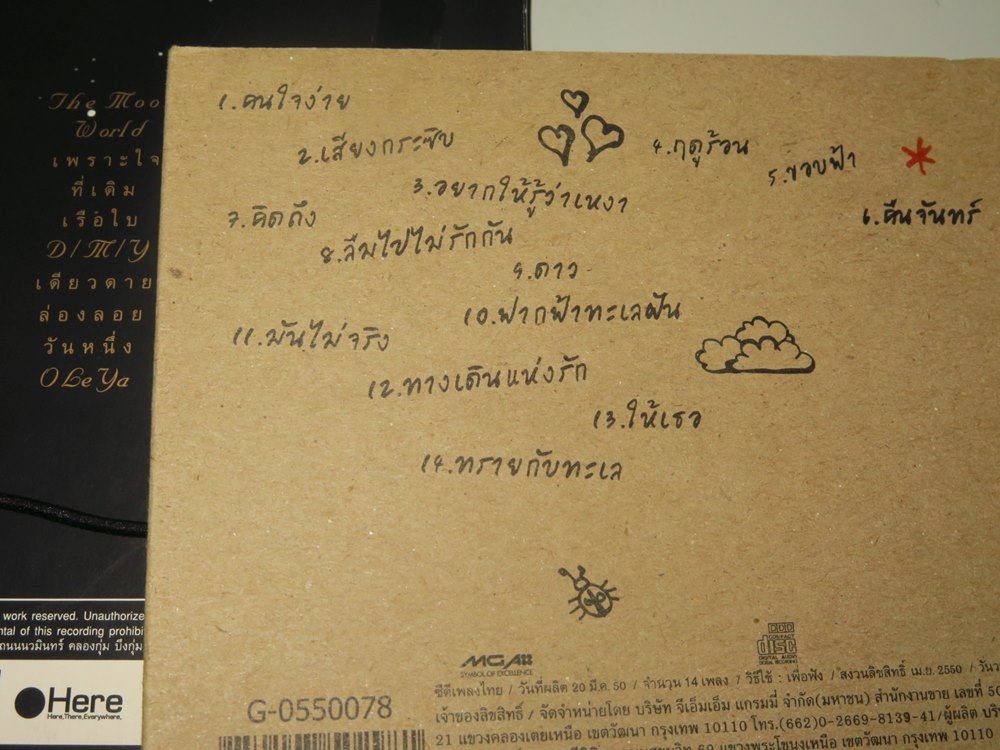 The Moo
World
เพราะใจ
ที่เดิม
เรือใบ
D/M/Y
เดียวดาย
ล่องลอย
วันหนึ่ง
O Le Ya
work reserved. Unauthorize
ntal of this recording prohibi
ถนนนวมินทร์ คลองกุ่ม บึงกุ่ม
Here
Here,There,Everywhere,
1.คนใจง่าย
2.เสียงกระซิบ
3.อยากให้รู้ว่าเหงา
4.ฤดูร้อน
5.ขอบฟ้า
6.คืนจันทร์
7.คิดถึง
8.ลืมไปไม่รักกัน
9.ดาว
10.ฟากฟ้าทะเลฝัน
11.มันไม่จริง
12.ทางเดินแห่งรัก
13.ให้เธอ
14.ทรายกับทะเล
MGA
SYMBOL OF EXCELLENCE
COMPACT
disc
DIGITAL AUDIO
G-0550078
ซีดีเพลงไทย / วันที่ผลิต 20 มี.ค. 50 / จำนวน 14 เพลง / วิธีใช้ : เพื่อฟัง / สงวนลิขสิทธิ์ เม.ย. 2550 /
เจ้าของลิขสิทธิ์ / จัดจำหน่ายโดย บริษัท จีเอ็มเอ็ม แกรมมี่ จำกัด(มหาชน) สำนักงานขาย เลขที่ 50
21 แขวงคลองเตยเหนือ เขตวัฒนา กรุงเทพ 10110 โทร.(662)0-2669-8139-41/ผู้ผลิต
แขวงพระโขนงเหนือ เขตวัฒนา กรุงเทพ 10110